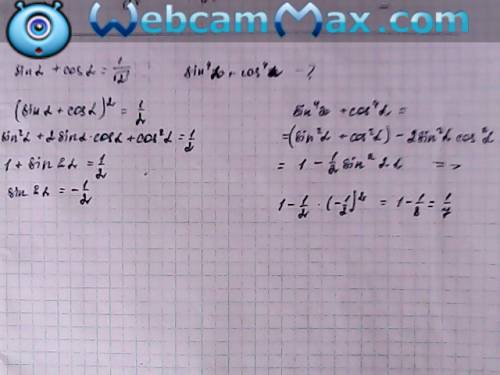 WebcamMax.com
sin α + cos α = 1/√2   sin⁴α + cos⁴α - ?
(sin α + cos α)² = 1/2
sin²α + 2 sin α · cos α + cos²α = 1/2
1 + sin 2α = 1/2
sin 2α = -1/2
sin⁴α + cos⁴α =
= (sin²α + cos²α) - 2 sin²α cos²α
= 1 - 1/2 sin²2α =>
1 - 1/2 · (-1/2)² = 1 - 1/8 = 1/7